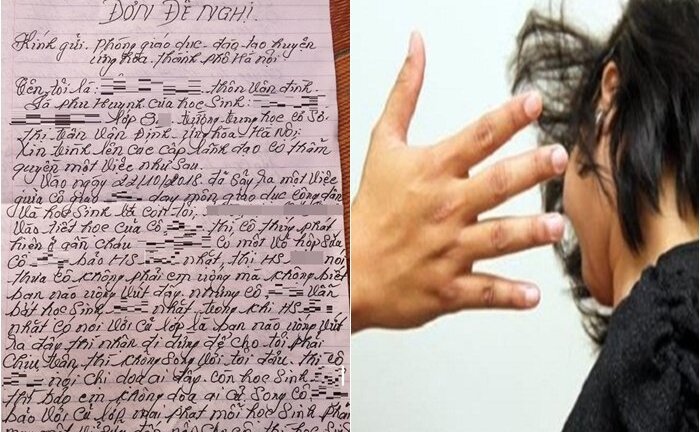 ĐƠN ĐỀ NGHỊ.
Kính gửi. phòng giáo dục - đào tạo huyện
ứng hòa, thành phố Hà nội
Tên tôi là: thôn Vân đình.
Là phụ huynh của học Sinh:
lớp 8 trường trung học cơ Sở
thị trấn Vân Đình - ứng hòa Hà Nội
Xin trình lên các cấp lãnh đạo có thẩm
quyền một việc như sau.
Vào ngày 22/10/2018 đã sảy ra một việc
giữa cô giáo dạy môn giáo dục công dân
và học Sinh là con tôi,
Vào tiết học của cô, thì cô thấy phát
hiện ở gần cháu có một vỏ hộp sữa
cô bảo HS nhặt, thì HS nói
thưa cô không phải em uống mà không biết
bạn nào uống vứt đấy. nhưng cô vẫn
bắt học sinh nhặt, trong khi HS
nhặt có nói với cả lớp là bạn nào uống vứt
ra đây thì nhận đi đừng để cho tôi phải
chịu vậy, thì không song với tôi đâu. thì cô
nói chị dọa ai đấy. còn học Sinh
thì bảo em không dọa ai cả Song cô
bảo với cả lớp phạt mỗi học Sinh phải